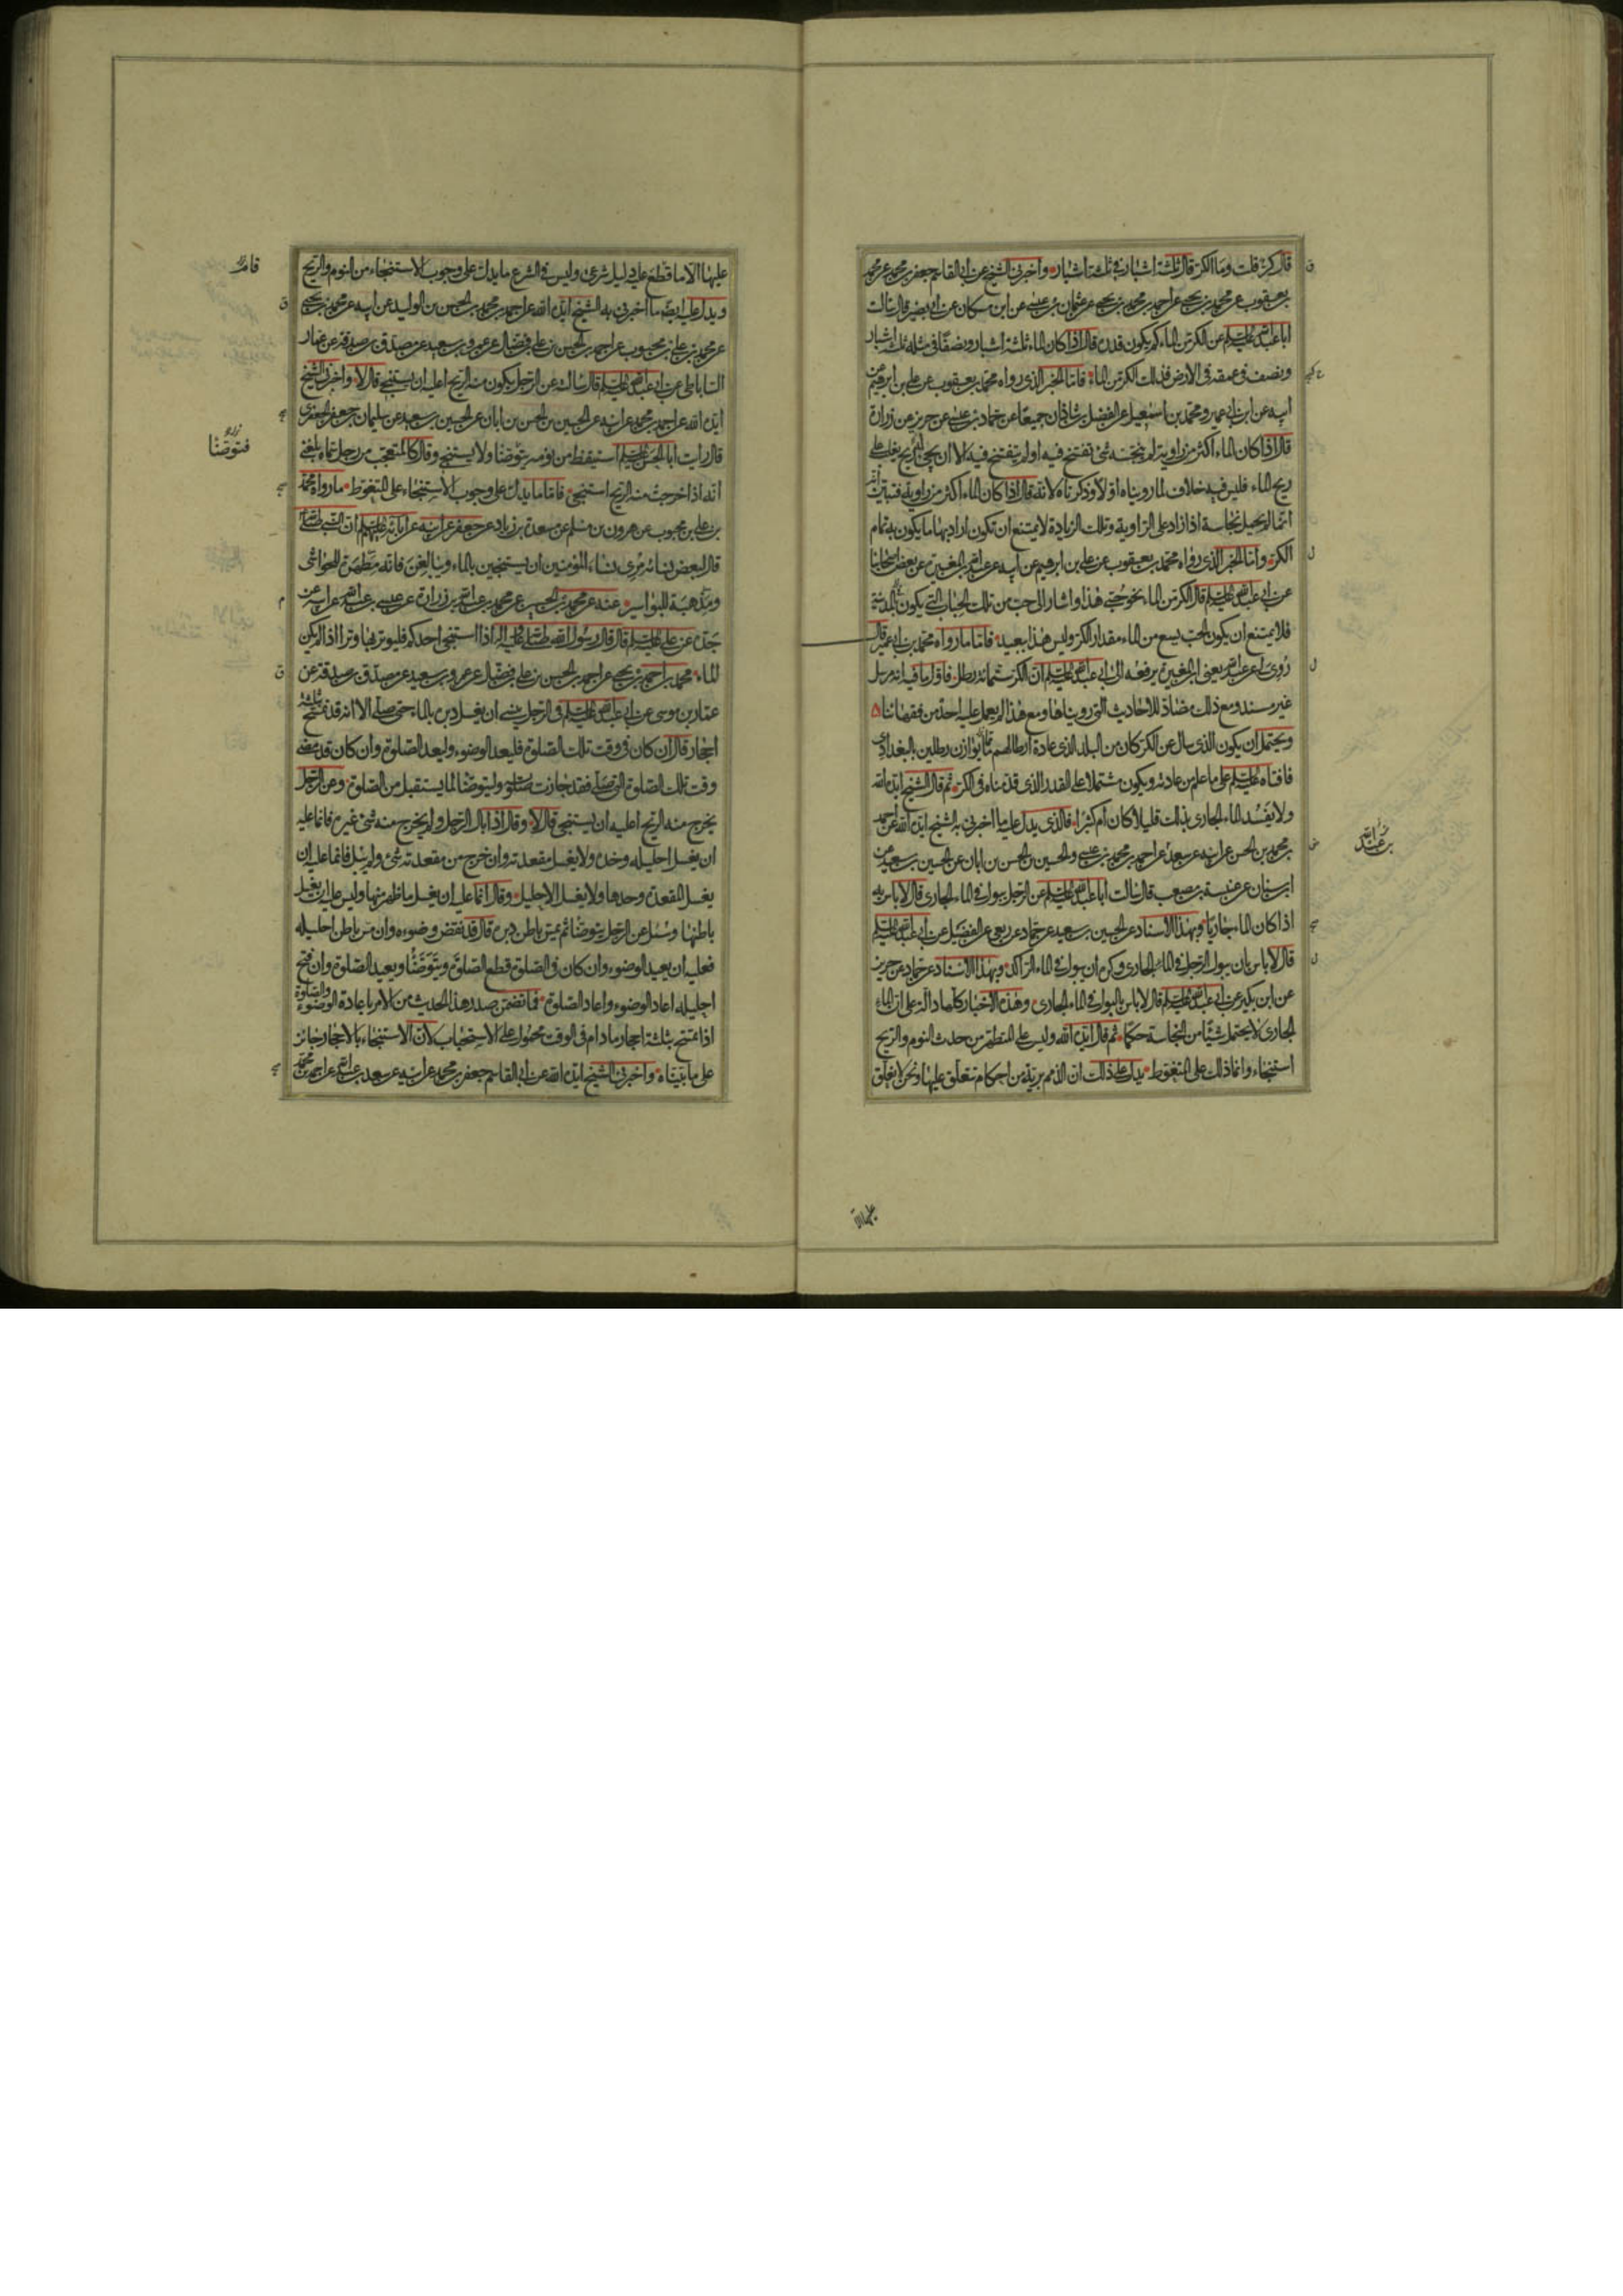 قال كر قلت وما الكر قال ثلثة اشبار في ثلثة اشبار واخبرني الشيخ عن ابي القاسم جعفر بن محمد عن محمد
بن يعقوب عن محمد بن يحيى عن احمد بن محمد بن يحيى عن عثمان بن عيسى عن ابن مسكان عن ابي بصير قال سالت
ابا عبد الله عليه السلم عن الكر من الماء كم يكون قدره قال اذا كان الماء ثلثة اشبار ونصفا في مثله ثلثة اشبار
ونصف في عمقه في الارض فذلك الكر من الماء فاما الخبر الذي رواه محمد بن يعقوب عن علي بن ابرهيم عن
ابيه عن ابن ابي عمير ومحمد بن اسمعيل عن الفضل بن شاذان جميعا عن حماد بن عيسى عن حريز عن زرارة
قال اذا كان الماء اكثر من راوية لم ينجسه شئ تفسخ فيه او لم يتفسخ فيه الا ان يجئ له ريح يغلب على
ريح الماء فليس فيه خلاف لما رويناه اولا وذكرناه لانه قال اذا كان الماء اكثر من راوية فتبين انه
انما لم يحمل نجاسة اذا زاد على الراوية وتلك الزيادة لا يمتنع ان تكون اراد بها ما يكون به تمام
الكر واما الخبر الذي رواه محمد بن يعقوب عن علي بن ابرهيم عن ابيه عن عبد الله بن المغيرة عن بعض اصحابنا
عن ابي عبد الله عليه السلم قال الكر من الماء نحو حبي هذا واشار الى حب من تلك الحباب التي يكون بالمدينة
فلا يمتنع ان يكون الحب يسع من الماء مقدار الكر وليس هذا ببعيد فاما ما رواه محمد بن ابي عمير قال
روي لي عن عبد الله يعني ابن المغيرة يرفعه الى ابي عبد الله عليه السلم ان الكر ستمائة رطل فاول ما فيه انه مرسل
غير مسند ومع ذلك مضاد للاحاديث التي رويناها ومع هذا لم يعمل عليه احد من فقهائنا
ويحتمل ان يكون الذي سال عن الكر كان من البلد الذي عادة ارطالهم ما يوازن رطلين بالبغدادي
فافتاه عليه السلم على ما علم من عادته ويكون مشتملا على القدر الذي قدمناه في الكر ثم قال الشيخ ايده الله
ولا يفسد الماء الجاري بذلك قليلا كان ام كثيرا فالذي يدل عليه ما اخبرني به الشيخ ايده الله عن احمد
بن محمد بن الحسن عن ابيه عن سعد عن احمد بن محمد بن عيسى والحسين بن الحسن بن ابان عن الحسين بن سعيد عن
بن عبد الله
ابن سنان عن عنبسة بن مصعب قال سالت ابا عبد الله عليه السلم عن الرجل يبول في الماء الجاري قال لا باس به
اذا كان الماء جاريا وبهذا الاسناد عن الحسين بن سعيد عن حماد عن ربعي عن الفضيل عن ابي عبد الله عليه السلم
قال لا باس بان يبول الرجل في الماء الجاري وكره ان يبول في الماء الراكد وبهذا الاسناد عن حماد عن حريز
عن ابن بكير عن ابي عبد الله عليه السلم قال لا باس بالبول في الماء الجاري وهذه الاخبار كلها دالة على ان الماء
الجاري لا يحتمل شيئا من النجاسة حكما ثم قال ايده الله وليس على المتطهر من حدث النوم والريح
استنجاء وانما ذلك على المتغوط يدل على ذلك ان الذمم برية من احكام تتعلق عليها ونحن لا نعلق
عليها الا
عليها الا ما قطع عليه دليل شرعي وليس في الشرع ما يدل على وجوب الاستنجاء من النوم والريح
ويدل عليه ايضا ما اخبرني به الشيخ ايده الله عن احمد بن محمد بن الحسن بن الوليد عن ابيه عن محمد بن يحيى
عن محمد بن علي بن محبوب عن احمد بن الحسن بن علي بن فضال عن عمرو بن سعيد عن مصدق بن صدقة عن عمار
الساباطي عن ابي عبد الله عليه السلم قال سالته عن الرجل يكون منه الريح اعليه ان يستنجي قال لا واخبرني الشيخ
ايده الله عن احمد بن محمد عن ابيه عن الحسين بن الحسن بن ابان عن الحسين بن سعيد عن سليمان بن جعفر الجعفري
قال رايت ابا الحسن عليه السلم استيقظ من نومه يتوضأ ولا يستنجي وقال كالمتعجب من رجل سماه بلغني
فتوضأ
انه اذا خرجت منه الريح استنجى فاما ما يدل على وجوب الاستنجاء على المتغوط ما رواه محمد
بن علي بن محبوب عن هرون بن مسلم عن مسعدة بن زياد عن جعفر عن ابيه عن ابائه عليهم السلم ان النبي صلى الله عليه
قال لبعض نسائه مري نساء المؤمنين ان يستنجين بالماء ويبالغن فانه مطهرة للحواشي
ومذهبة للبواسير عنه عن محمد بن الحسين عن محمد بن عبد الله بن زرارة عن عيسى بن عبد الله عن ابيه عن
جده عن علي عليه السلم قال قال رسول الله صلى الله عليه واله اذا استنجى احدكم فليوتر بها وترا اذا لم يكن
الماء محمد بن احمد بن يحيى عن احمد بن الحسن بن علي بن فضال عن عمرو بن سعيد عن مصدق بن صدقة عن
عمار بن موسى عن ابي عبد الله عليه السلم في الرجل ينسى ان يغسل دبره بالماء حتى صلى الا انه قد تمسح بثلثة
احجار قال ان كان في وقت تلك الصلوة فليعد الوضوء وليعد الصلوة وان كان قد مضى
وقت تلك الصلوة التي صلى فقد جازت صلوته وليتوضأ لما يستقبل من الصلوة وعن الرجل
يخرج منه الريح اعليه ان يستنجي قال لا وقال اذا بال الرجل ولم يخرج منه شئ غيره فانما عليه
ان يغسل احليله وحده ولا يغسل مقعدته وان خرج من مقعدته شئ ولم يبل فانما عليه ان
يغسل المقعدة وحدها ولا يغسل الاحليل وقال انما عليه ان يغسل ما ظهر منها وليس عليه ان يغسل
باطنها وسئل عن الرجل يتوضأ ثم يمس باطن دبره قال قد نقض وضوءه وان مس باطن احليله
فعليه ان يعيد الوضوء وان كان في الصلوة قطع الصلوة ويتوضأ ويعيد الصلوة وان فتح
احليله اعاد الوضوء واعاد الصلوة فما تضمن صدر هذا الحديث من الامر باعادة الوضوء والصلوة
اذا تمسح بثلثة احجار ما دام في الوقت محمول على الاستحباب لان الاستنجاء بالاحجار جائز
على ما بيناه واخبرني الشيخ ايده الله عن ابي القاسم جعفر بن محمد عن ابيه عن سعد بن عبد الله عن احمد بن محمد